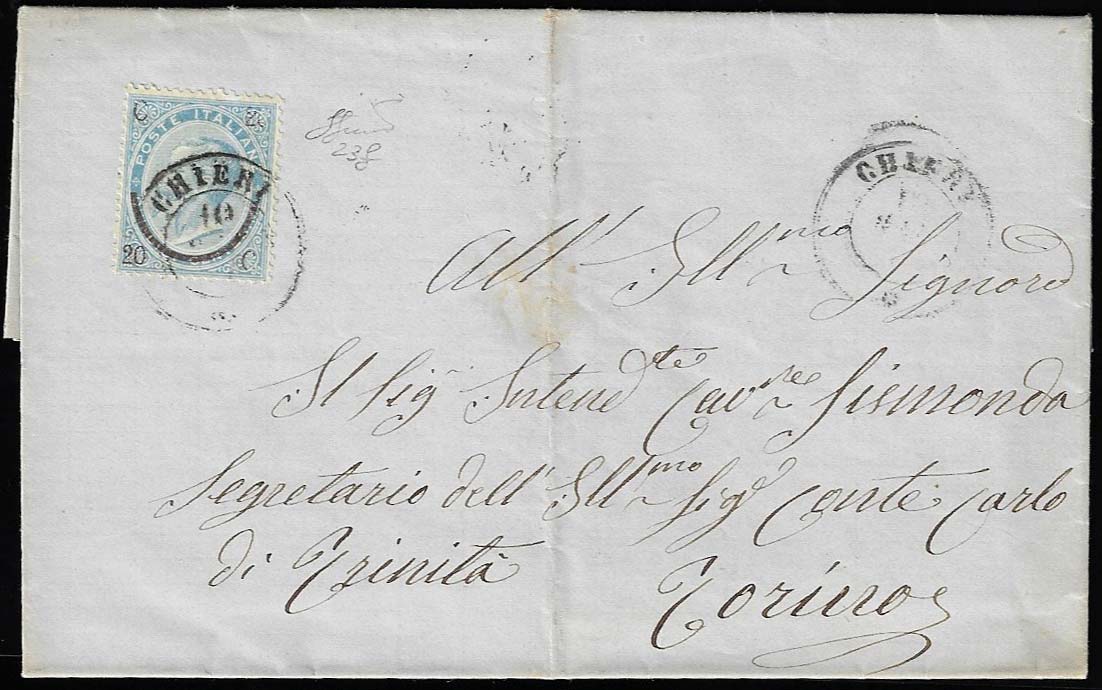 C 20
POSTE ITALIANE
20 C
CHIERI
10
CHIERI
All' Ill.mo Signore
Il Sig. Intend.te Cav.re Sismonda
Segretario dell' Ill.mo Sig. Conte Carlo
di Trinità
Torino